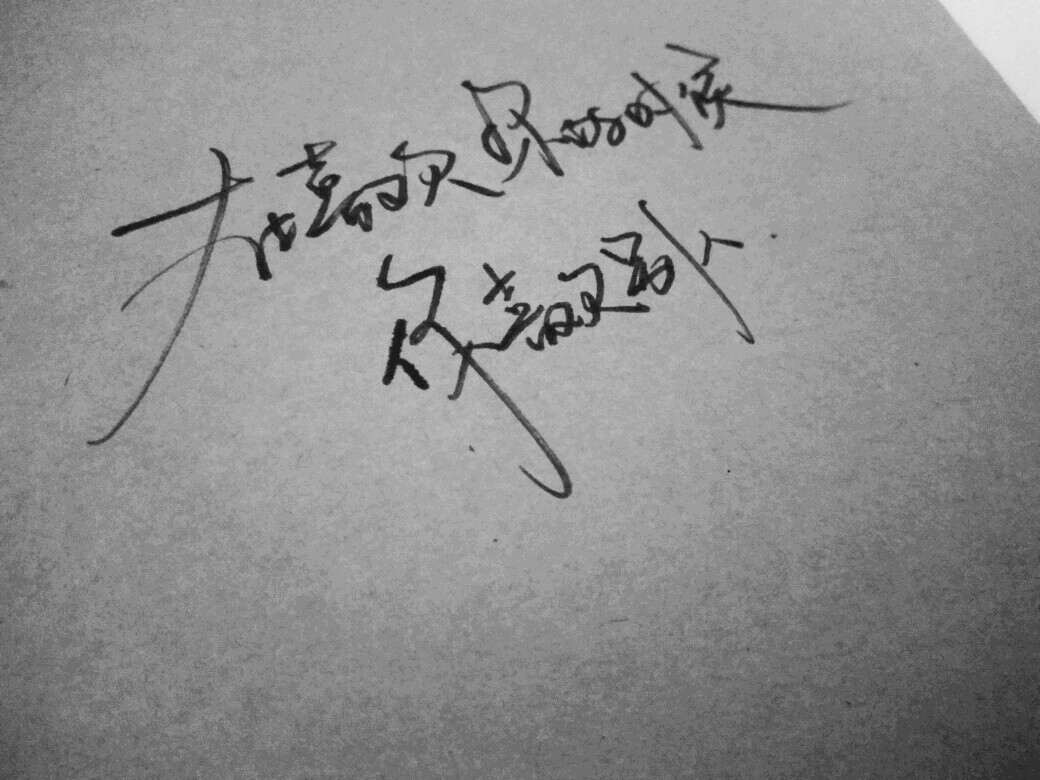 在喜欢你的时候
你喜欢别人